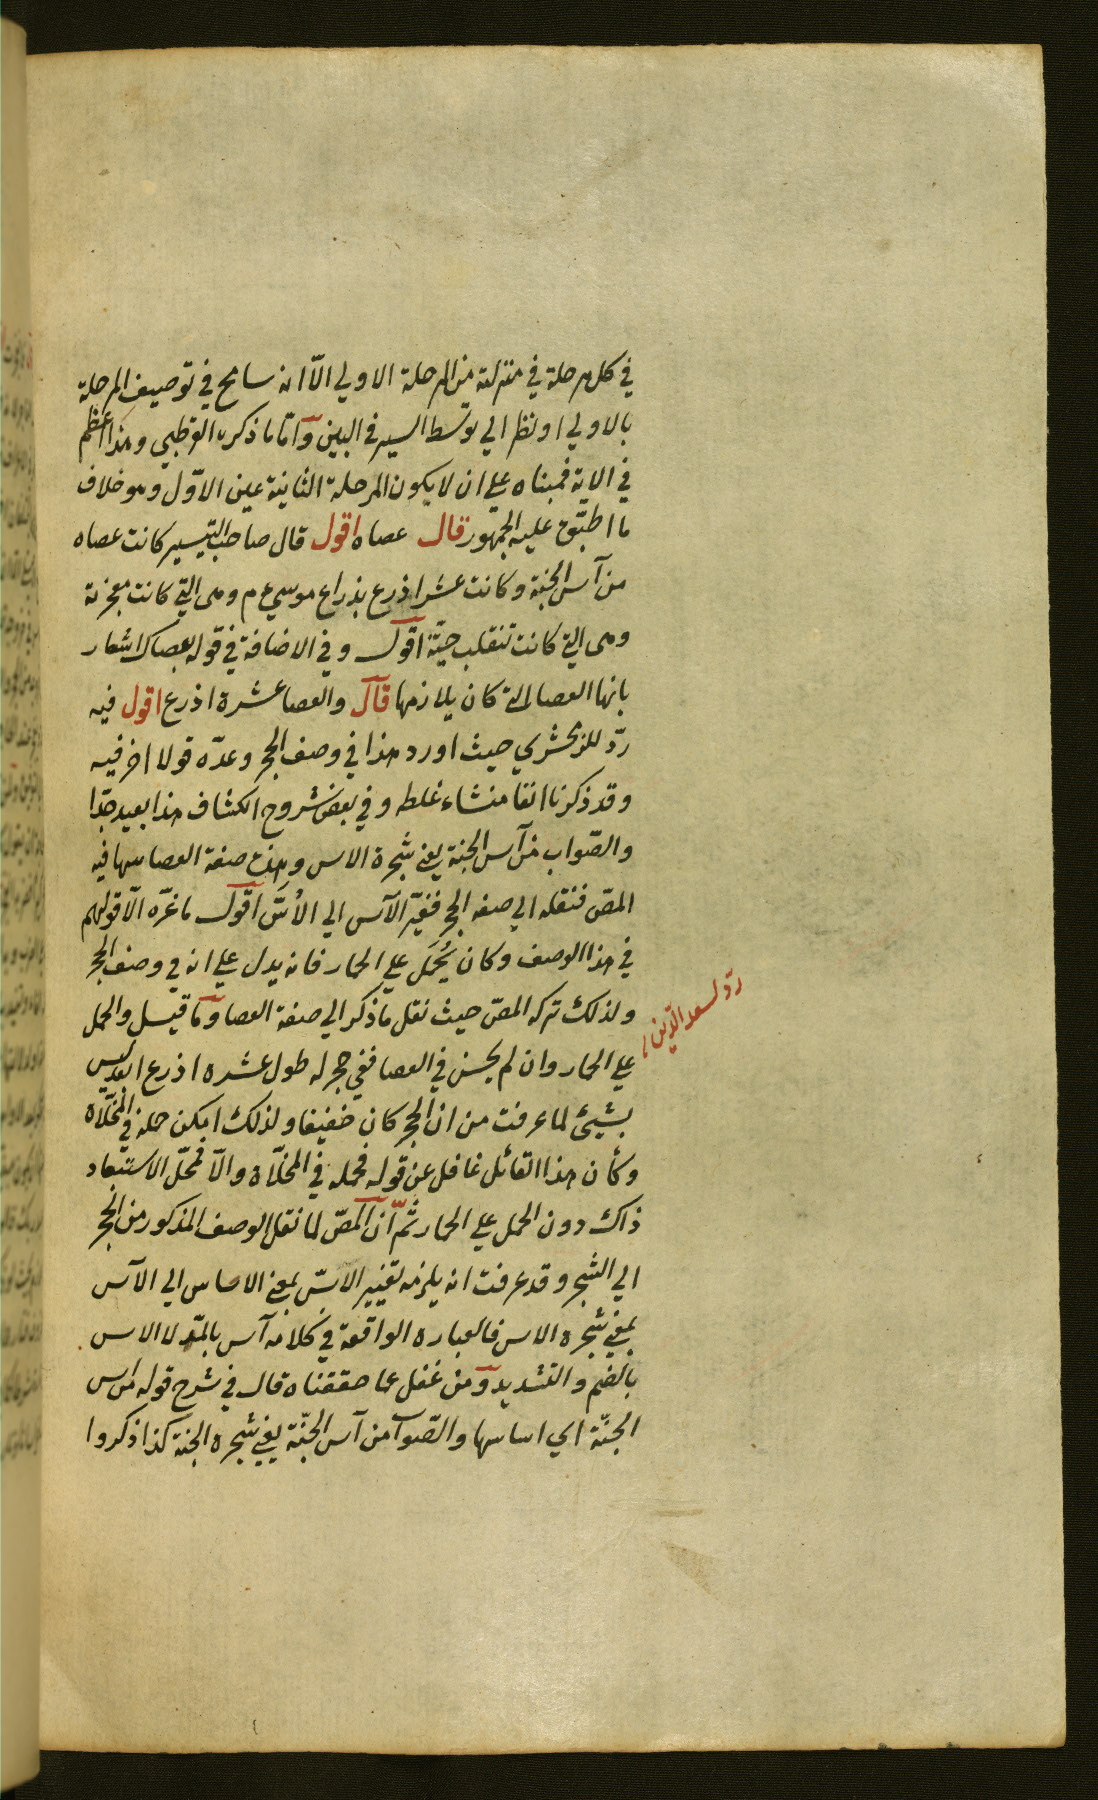 في كل مرحلة في منزلته من المرحلة الاولي الّا انه سامح في توصيف المرحلة
بالاولي او نظر الي توسّط السير في البين وامّا ما ذكره القرطبي وهذا اعظم
في الاية فمبناه علي ان لا يكون المرحلة الثانية عين الاوّل وهو خلاف
ما اطبق عليه الجمهور قال عصاه اقول قال صاحب التيسير كانت عصاه
من آس الجنة وكانت عشر اذرع بذراع موسي عم وهي التي كانت معجزته
وهي التي كانت تنقلب حيّة اقول وفي الاضافة في قوله بعصاك اشعار
بانها العصا التي كان يلازمها قال والعصا عشرة اذرع اقول فيه
ردّ للزمخشري حيث اورد هذا في وصف الحجر وعدّه قولا اخر فيه
وقد ذكرنا انفا منشاء غلطه وفي بعض شروح الكشاف هذا بعيد جدّا
والصّواب من آس الجنة يعني شجرة الاس وهذه صفة العصا سها فيه
المصّ فنقله الي صفة الحجر فغيّر الآس الي الأسّ اقول ما غرّه الّا قولهم
في هذا الوصف وكان يُحمَل علي الحمار فانه يدل علي انه في وصف الحجر
ولذلك تركه المصّ حيث نقل ما ذكر الي صفة العصا وما قيل والحمل
علي الحمار وان لم يحسن في العصا ففي حجر له طول عشرة اذرع ابعد ليس
بشيئ لما عرفت من ان الحجر كان خفيفا ولذلك امكن حمله في المخلاة
وكأن هذا القائل غافل عن قوله فحمله في المخلاة والّا فمحلّ الاستبعاد
ذاك دون الحمل علي الحمار ثمّ انّ المصّ لما نقل الوصف المذكور من الحجر
الي الشجر وقد عرفت انه يلزمه تغيير الاسّ بمعني الاساس الي الآس
بمعني شجرة الاس فالعبارة الواقعة في كلامه آس بالمدّ لا الاس
بالضم والتشديد ومن غفل عما حققناه قال في شرح قوله من اس
الجنّة اي اساسها والصّواب من آس الجنّة يعني شجرة الجنة كذا ذكروا
ردّ لسعد الدّين